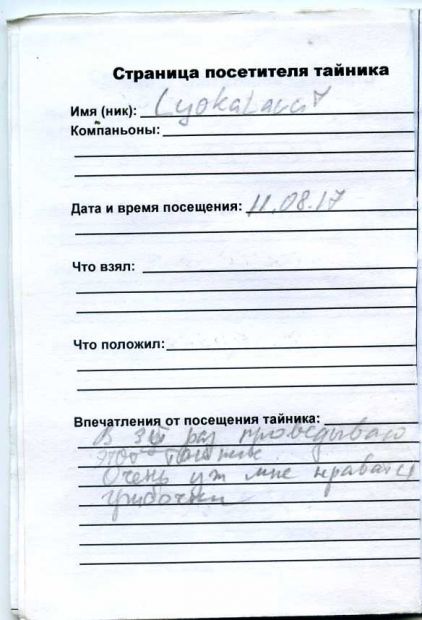 Страница посетителя тайника
Имя (ник):
Компаньоны:
Дата и время посещения: 11.08.17
Что взял:
Что положил:
Впечатления от посещения тайника:
В 3й раз проведываю
этот тайник
Очень уж мне нравятся
грибочки